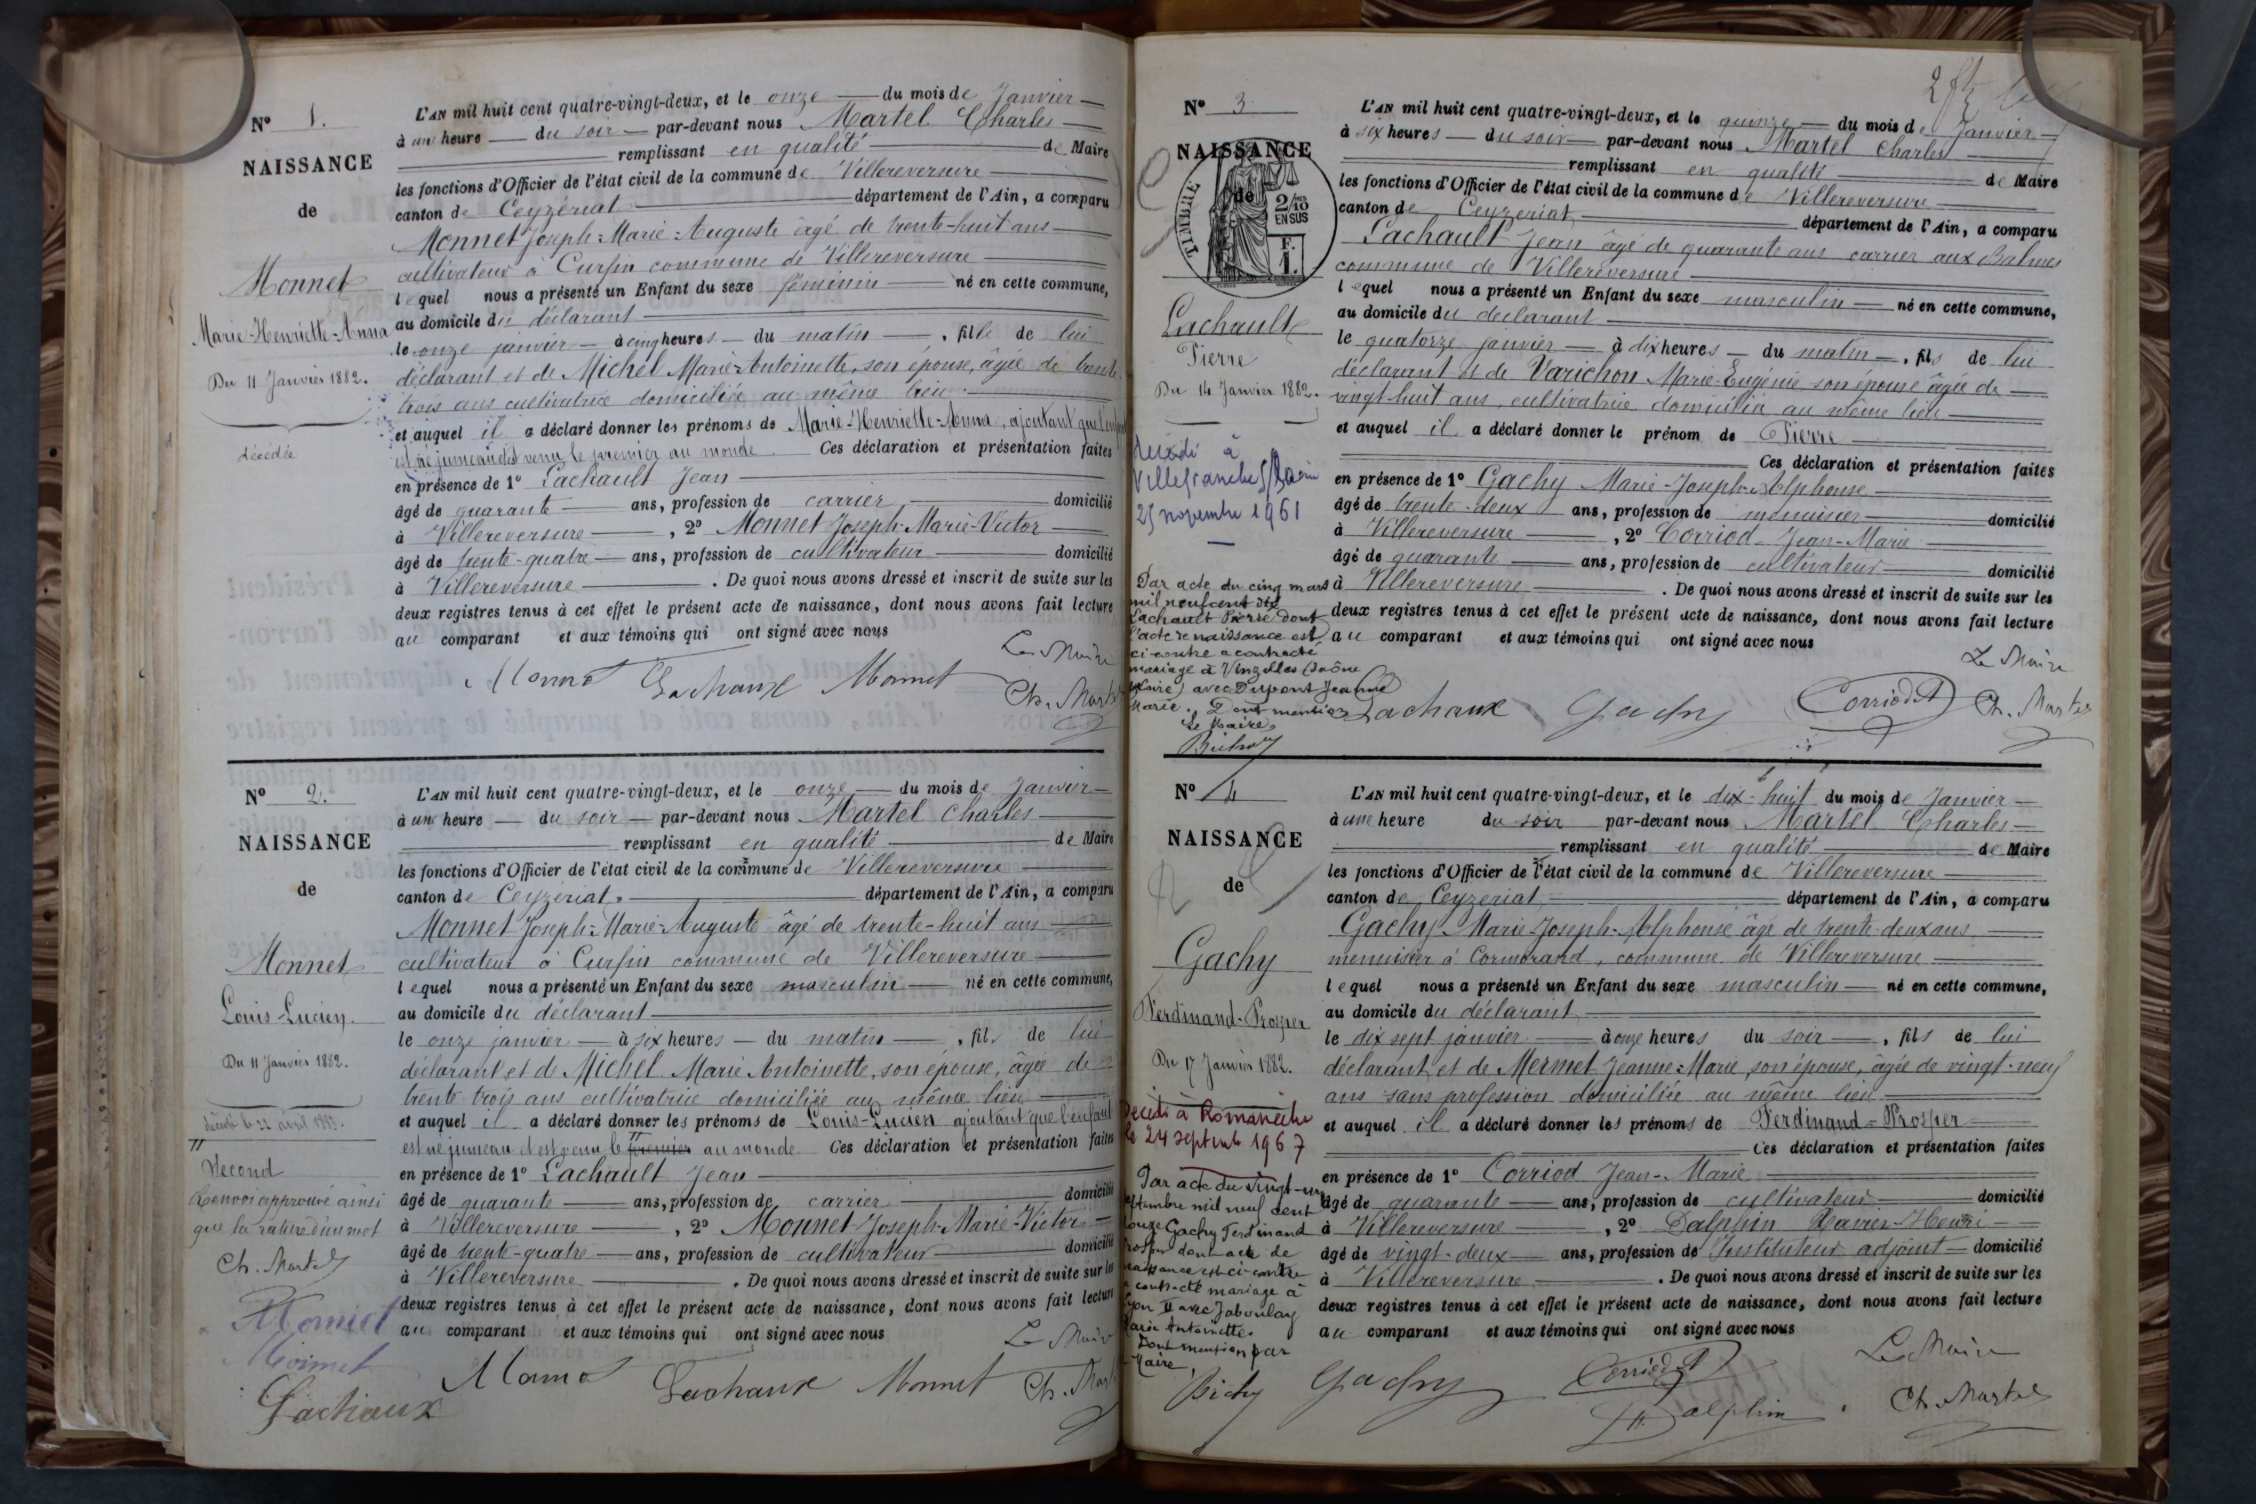 N° 1.
NAISSANCE
de
Monnet
Marie-Henriette-Anna
Du 11 Janvier 1882.
décédée
L'AN mil huit cent quatre-vingt-deux, et le onze du mois de Janvier
à une heure du soir par-devant nous Martel Charles
remplissant en qualité de Maire
les fonctions d'Officier de l'état civil de la commune de Villereversure
canton de Ceyzériat département de l'Ain, a comparu
Monnet Joseph-Marie-Auguste âgé de trente-huit ans
cultivateur à Cursin commune de Villereversure
lequel nous a présenté un Enfant du sexe féminin né en cette commune,
au domicile du déclarant
le onze janvier à cinq heures du matin, fille de lui
déclarant et de Michel Marie-Antoinette, son épouse, âgée de trente
trois ans cultivatrice domiciliée au même lieu
et auquel il a déclaré donner les prénoms de Marie-Henriette-Anna, ajoutant que l'enfant
est né jumeau et venu le premier au monde Ces déclaration et présentation faites
en présence de 1° Lachault Jean
âgé de quarante ans, profession de carrier domicilié
à Villereversure, 2° Monnet Joseph-Marie-Victor
âgé de trente-quatre ans, profession de cultivateur domicilié
à Villereversure. De quoi nous avons dressé et inscrit de suite sur les
deux registres tenus à cet effet le présent acte de naissance, dont nous avons fait lecture
au comparant et aux témoins qui ont signé avec nous
Le Maire
Monnet Lachaux Monnet Ch. Martel
N° 2.
NAISSANCE
de
Monnet
Louis-Lucien.
Du 11 Janvier 1882.
décédé le 22 avril
second
Renvoi approuvé ainsi
que la rature d'un mot
Ch. Martel
Monnet
Monnet
Lachaux
L'AN mil huit cent quatre-vingt-deux, et le onze du mois de Janvier
à une heure du soir par-devant nous Martel Charles
remplissant en qualité de Maire
les fonctions d'Officier de l'état civil de la commune de Villereversure
canton de Ceyzériat. département de l'Ain, a comparu
Monnet Joseph-Marie-Auguste âgé de trente-huit ans
cultivateur à Cursin commune de Villereversure
lequel nous a présenté un Enfant du sexe masculin né en cette commune,
au domicile du déclarant
le onze janvier à six heures du matin, fils de lui
déclarant et de Michel Marie Antoinette, son épouse, âgée de
trente trois ans cultivatrice domiciliée au même lieu
et auquel il a déclaré donner les prénoms de Louis-Lucien ajoutant que l'enfant
est né jumeau et est venu le premier au monde Ces déclaration et présentation faites
en présence de 1° Lachault Jean
âgé de quarante ans, profession de carrier domicilié
à Villereversure, 2° Monnet Joseph-Marie-Victor
âgé de trente-quatre ans, profession de cultivateur domicilié
à Villereversure. De quoi nous avons dressé et inscrit de suite sur les
deux registres tenus à cet effet le présent acte de naissance, dont nous avons fait lecture
au comparant et aux témoins qui ont signé avec nous
Le Maire
Monnet Lachaux Monnet Ch. Martel
N° 3
NAISSANCE
de
TIMBRE
2/10 EN SUS
F. 1.
Lachault
Pierre
Du 14 Janvier 1882.
Décédé à
Villefranche S/Saône
25 novembre 1961
Par acte du cinq mars
mil neuf cent dix
Lachault Pierre dont
l'acte de naissance est
ci-contre a contracté
mariage à Vinzelles (Saône
Loire) avec Dupont Jeanne
Marie. Dont mention
Le Maire
L'AN mil huit cent quatre-vingt-deux, et le quinze du mois de Janvier
à six heures du soir par-devant nous Martel Charles
remplissant en qualité de Maire
les fonctions d'Officier de l'état civil de la commune de Villereversure
canton de Ceyzeriat département de l'Ain, a comparu
Lachault Jean âgé de quarante ans carrier aux Balmes
commune de Villereversure
lequel nous a présenté un Enfant du sexe masculin né en cette commune,
au domicile du déclarant
le quatorze janvier à dix heures du matin, fils de lui
déclarant et de Varichon Marie-Eugénie son épouse âgée de
vingt-huit ans, cultivatrice domiciliée au même lieu
et auquel il a déclaré donner le prénom de Pierre
Ces déclaration et présentation faites
en présence de 1° Gachy Marie-Joseph-Alphonse
âgé de trente-deux ans, profession de menuisier domicilié
à Villereversure, 2° Corriod Jean-Marie
âgé de quarante ans, profession de cultivateur domicilié
à Villereversure. De quoi nous avons dressé et inscrit de suite sur les
deux registres tenus à cet effet le présent acte de naissance, dont nous avons fait lecture
au comparant et aux témoins qui ont signé avec nous
Le Maire
Lachaux Gachy Corriod Ch. Martel
N° 4
NAISSANCE
de
Gachy
Ferdinand-Prosper
Du 17 Janvier 1882.
Décédé à Romanèche
le 24 septembre 1967
Par acte du vingt-un
septembre mil neuf cent
douze Gachy Ferdinand
Prosper dont acte de
naissance est ci-contre
a contracté mariage à
Lyon II avec Jaboulay
Marie Antoinette.
Dont mention par
Maire,
L'AN mil huit cent quatre-vingt-deux, et le dix-huit du mois de Janvier
à une heure du soir par-devant nous Martel Charles
remplissant en qualité de Maire
les fonctions d'Officier de l'état civil de la commune de Villereversure
canton de Ceyzeriat département de l'Ain, a comparu
Gachy Marie-Joseph-Alphonse âgé de trente-deux ans
menuisier à Cormorand, commune de Villereversure
lequel nous a présenté un Enfant du sexe masculin né en cette commune,
au domicile du déclarant
le dix sept janvier à onze heures du soir, fils de lui
déclarant et de Mermet Jeanne-Marie, son épouse, âgée de vingt-neuf
ans sans profession domiciliée au même lieu
et auquel il a déclaré donner les prénoms de Ferdinand-Prosper
Ces déclaration et présentation faites
en présence de 1° Corriod Jean-Marie
âgé de quarante ans, profession de cultivateur domicilié
à Villereversure, 2° Dalphin Xavier-Henri
âgé de vingt-deux ans, profession de Instituteur adjoint domicilié
à Villereversure. De quoi nous avons dressé et inscrit de suite sur les
deux registres tenus à cet effet le présent acte de naissance, dont nous avons fait lecture
au comparant et aux témoins qui ont signé avec nous
Le Maire
Gachy Corriod Dalphin Ch. Martel